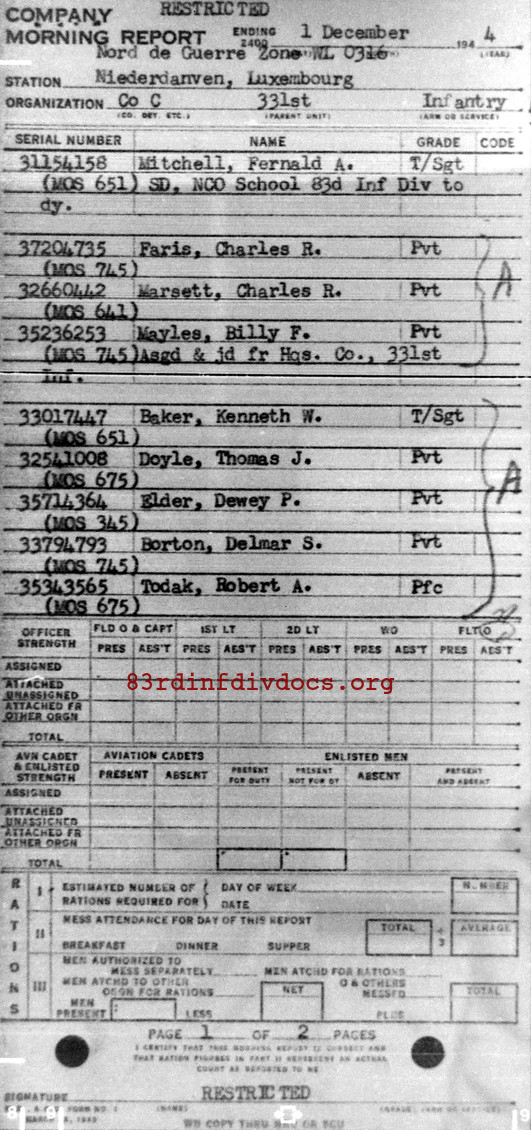 RESTRICTED
COMPANY
MORNING REPORT ENDING 2400 1 December 194 4
(YEAR)
Nord de Guerre Zone WL 0316
STATION Niederdanven, Luxembourg
ORGANIZATION Co C 331st Infantry
(CO. DET. ETC.) (PARENT UNIT) (ARM OR SERVICE)
SERIAL NUMBER NAME GRADE CODE
31154158 Mitchell, Fernald A. T/Sgt
(MOS 651) SD, NCO School 83d Inf Div to
dy.
37204735 Faris, Charles R. Pvt
(MOS 745)
32660442 Marsett, Charles R. Pvt A
(MOS 641)
35236253 Mayles, Billy F. Pvt
(MOS 745) Asgd & jd fr Hqs. Co., 331st
Inf.
33017447 Baker, Kenneth W. T/Sgt
(MOS 651)
32541008 Doyle, Thomas J. Pvt
(MOS 675) A
35714364 Elder, Dewey P. Pvt
(MOS 345)
33794793 Borton, Delmar S. Pvt
(MOS 745)
35343565 Todak, Robert A. Pfc
(MOS 675)
OFFICER STRENGTH FLD O & CAPT 1ST LT 2D LT WO FLT O
PRES ABS'T PRES ABS'T PRES ABS'T PRES ABS'T PRES ABS'T
ASSIGNED
ATTACHED UNASSIGNED
83rdinfdivdocs.org
ATTACHED FR OTHER ORGN
TOTAL
AVN CADET & ENLISTED STRENGTH AVIATION CADETS ENLISTED MEN
PRESENT ABSENT PRESENT FOR DUTY PRESENT NOT FOR DY ABSENT PRESENT AND ABSENT
ASSIGNED
ATTACHED UNASSIGNED
ATTACHED FR OTHER ORGN
TOTAL
RATIONS
I ESTIMATED NUMBER OF RATIONS REQUIRED FOR { DAY OF WEEK NUMBER
DATE
II MESS ATTENDANCE FOR DAY OF THIS REPORT TOTAL ÷ 3 AVERAGE
BREAKFAST DINNER SUPPER
III MEN AUTHORIZED TO MESS SEPARATELY MEN ATCHD FOR RATIONS
MEN ATCHD TO OTHER ORGN FOR RATIONS NET O & OTHERS MESSED TOTAL
MEN PRESENT LESS PLUS
PAGE 1 OF 2 PAGES
I CERTIFY THAT THIS MORNING REPORT IS CORRECT AND
THAT RATION FIGURES IN PART II REPRESENT AN ACTUAL
COUNT AS REPORTED TO ME
SIGNATURE RESTRICTED
FORM NO. 1 (NAME)
WD COPY THRU